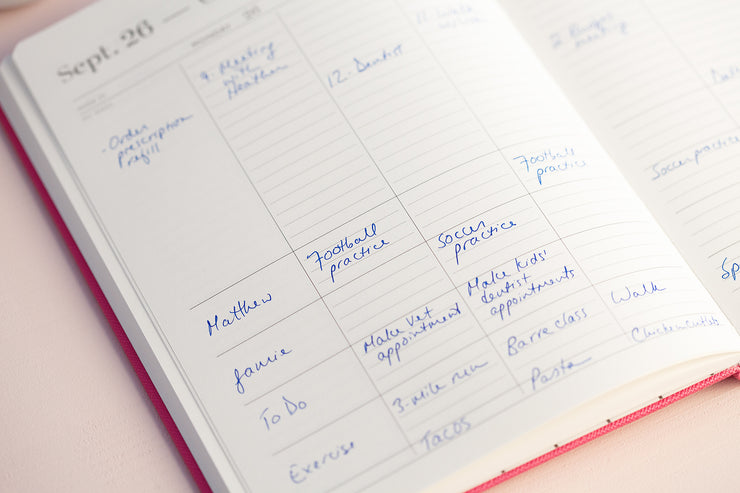 Sept. 26 —
MONDAY 26
· Order
prescription
refill
9. Meeting
with
Heather
12. Dentist
11.
Football
practice
Soccer practice
Matthew
Football
practice
Soccer
practice
Jamie
To Do
Make vet
appointment
Make kids'
dentist
appointments
Exercise
3-mile run
Barre class
Walk
Tacos
Pasta
Chicken cutlets
Sp